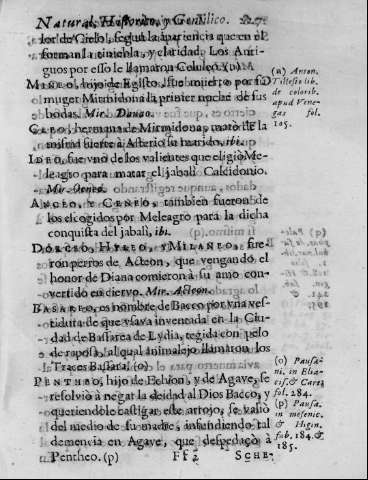 Natural, Historico, y Gentilico. 227
lor de Cielo, segun la apariencia que en el
forman la tiniebla, y claridad. Los Anti-
guos por esso le llamaron Celuleo. (n)
hijo de Egisto, fue muerto por su
muger Mirmidona la primer noche de sus
bodas. Mir. Danao.
hermana de Mirmidona, matò de la
misma suerte à Asterio su marido, ibi.
IDEO, fue vno de los valientes que eligiò Me-
leagro para matar el jabalì Calcidonio.
Mir. Oeneo.
ANCEO, y CENEO, tambien fueron de
los escogidos por Meleagro para la dicha
conquista del jabalì, ibi.
DORCEO, HYLEO, y MILANEO, fue-
ron perros de Acteon, que vengando el
honor de Diana comieron à su amo con-
vertido en ciervo. Mir. Acteon.
BASAREO, es nombre de Bacco por vna ves-
tidura de que vsava inventada en la Ciu-
dad de Bassarea de Lydia, tegida con pelo
de raposa, al qual animalejo llamaron los
Traces Bassarâ. (o)
PENTHEO, hijo de Echion, y de Agave, se
resolviò à negar la deidad al Dios Bacco, y
queriendole castigar este arrojo, se valiò
del medio de su madre, infundiendo tal
demencia en Agave, que despedaçò à
Pentheo. (p) Ff 2 SCHE-
(n) Anton.
Tilesio lib.
de colorib.
apud Vene-
gas fol.
105.
(o) Pausa-
ni. in Eba-
cis. & Cart.
fol. 284.
(p) Pausa.
in mesenic.
& Higin.
fab. 184. &
185.